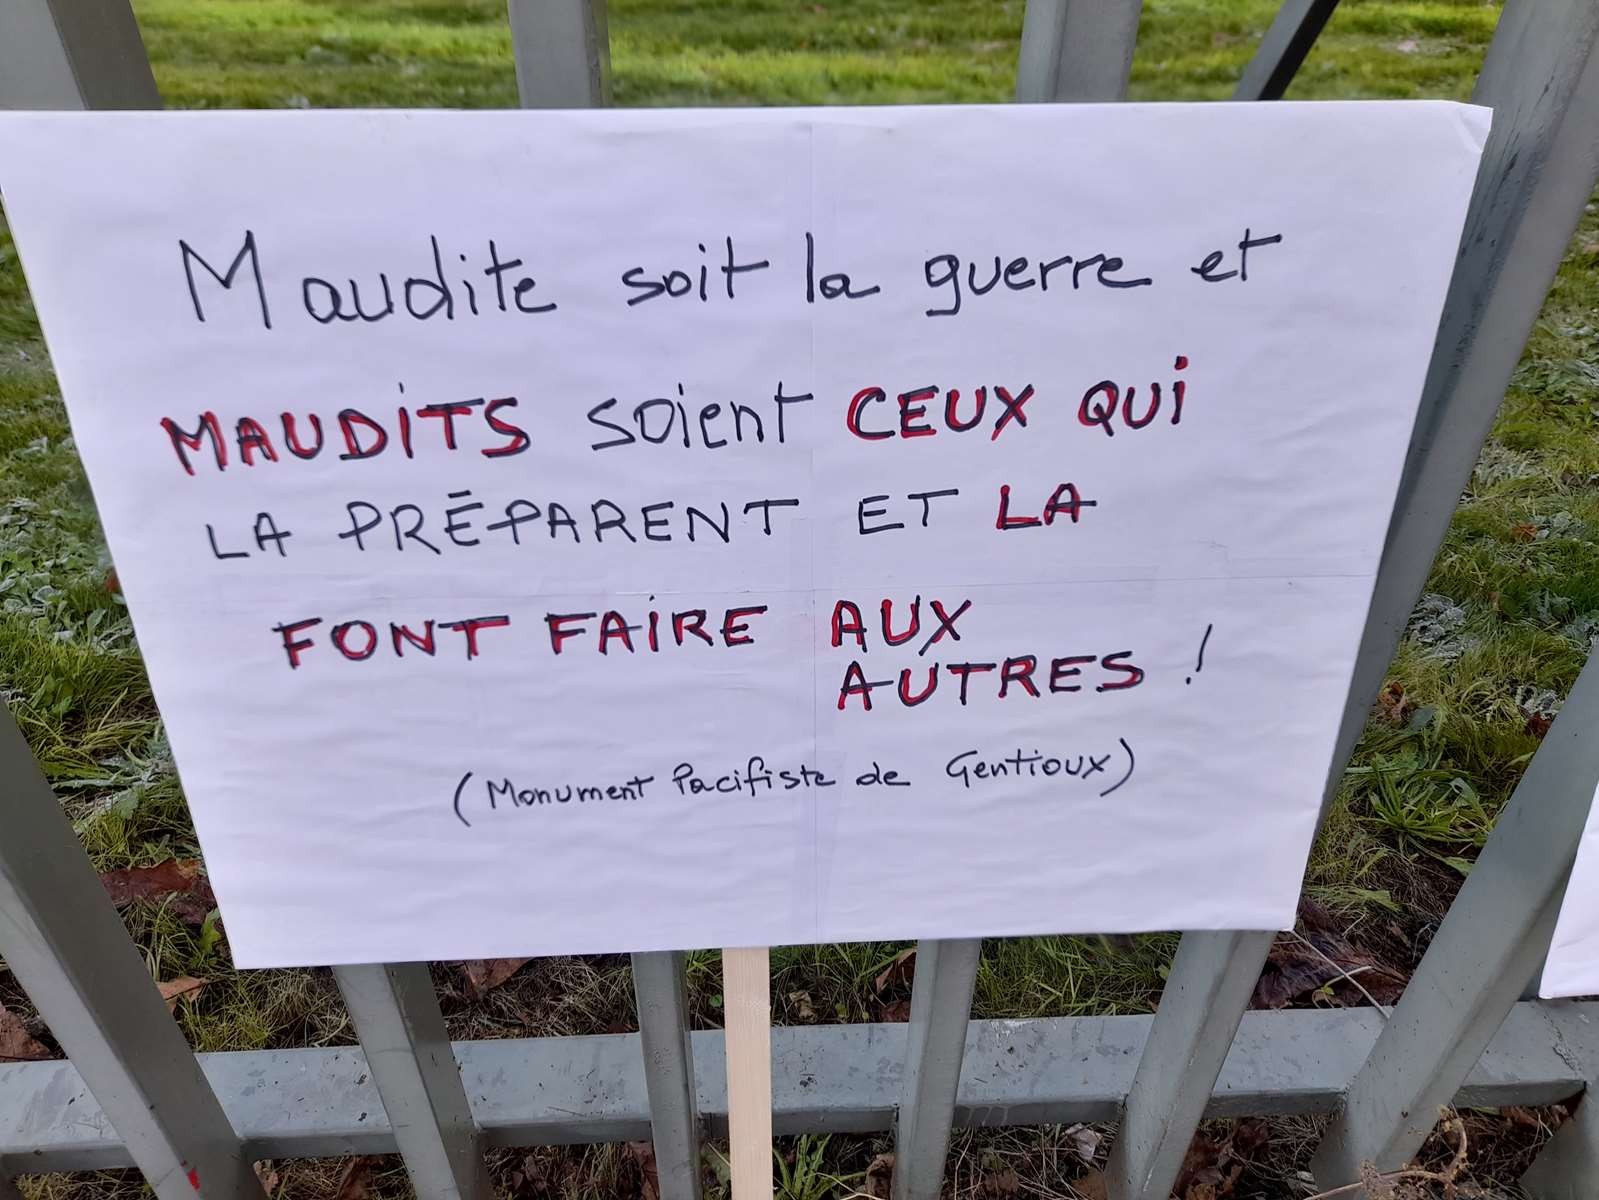 Maudite soit la guerre et
MAUDiTS soient CEUX QUi
LA PRÉPARENT ET LA
FONT FAiRE AUX
AUTRES !
(Monument Pacifiste de Gentioux)